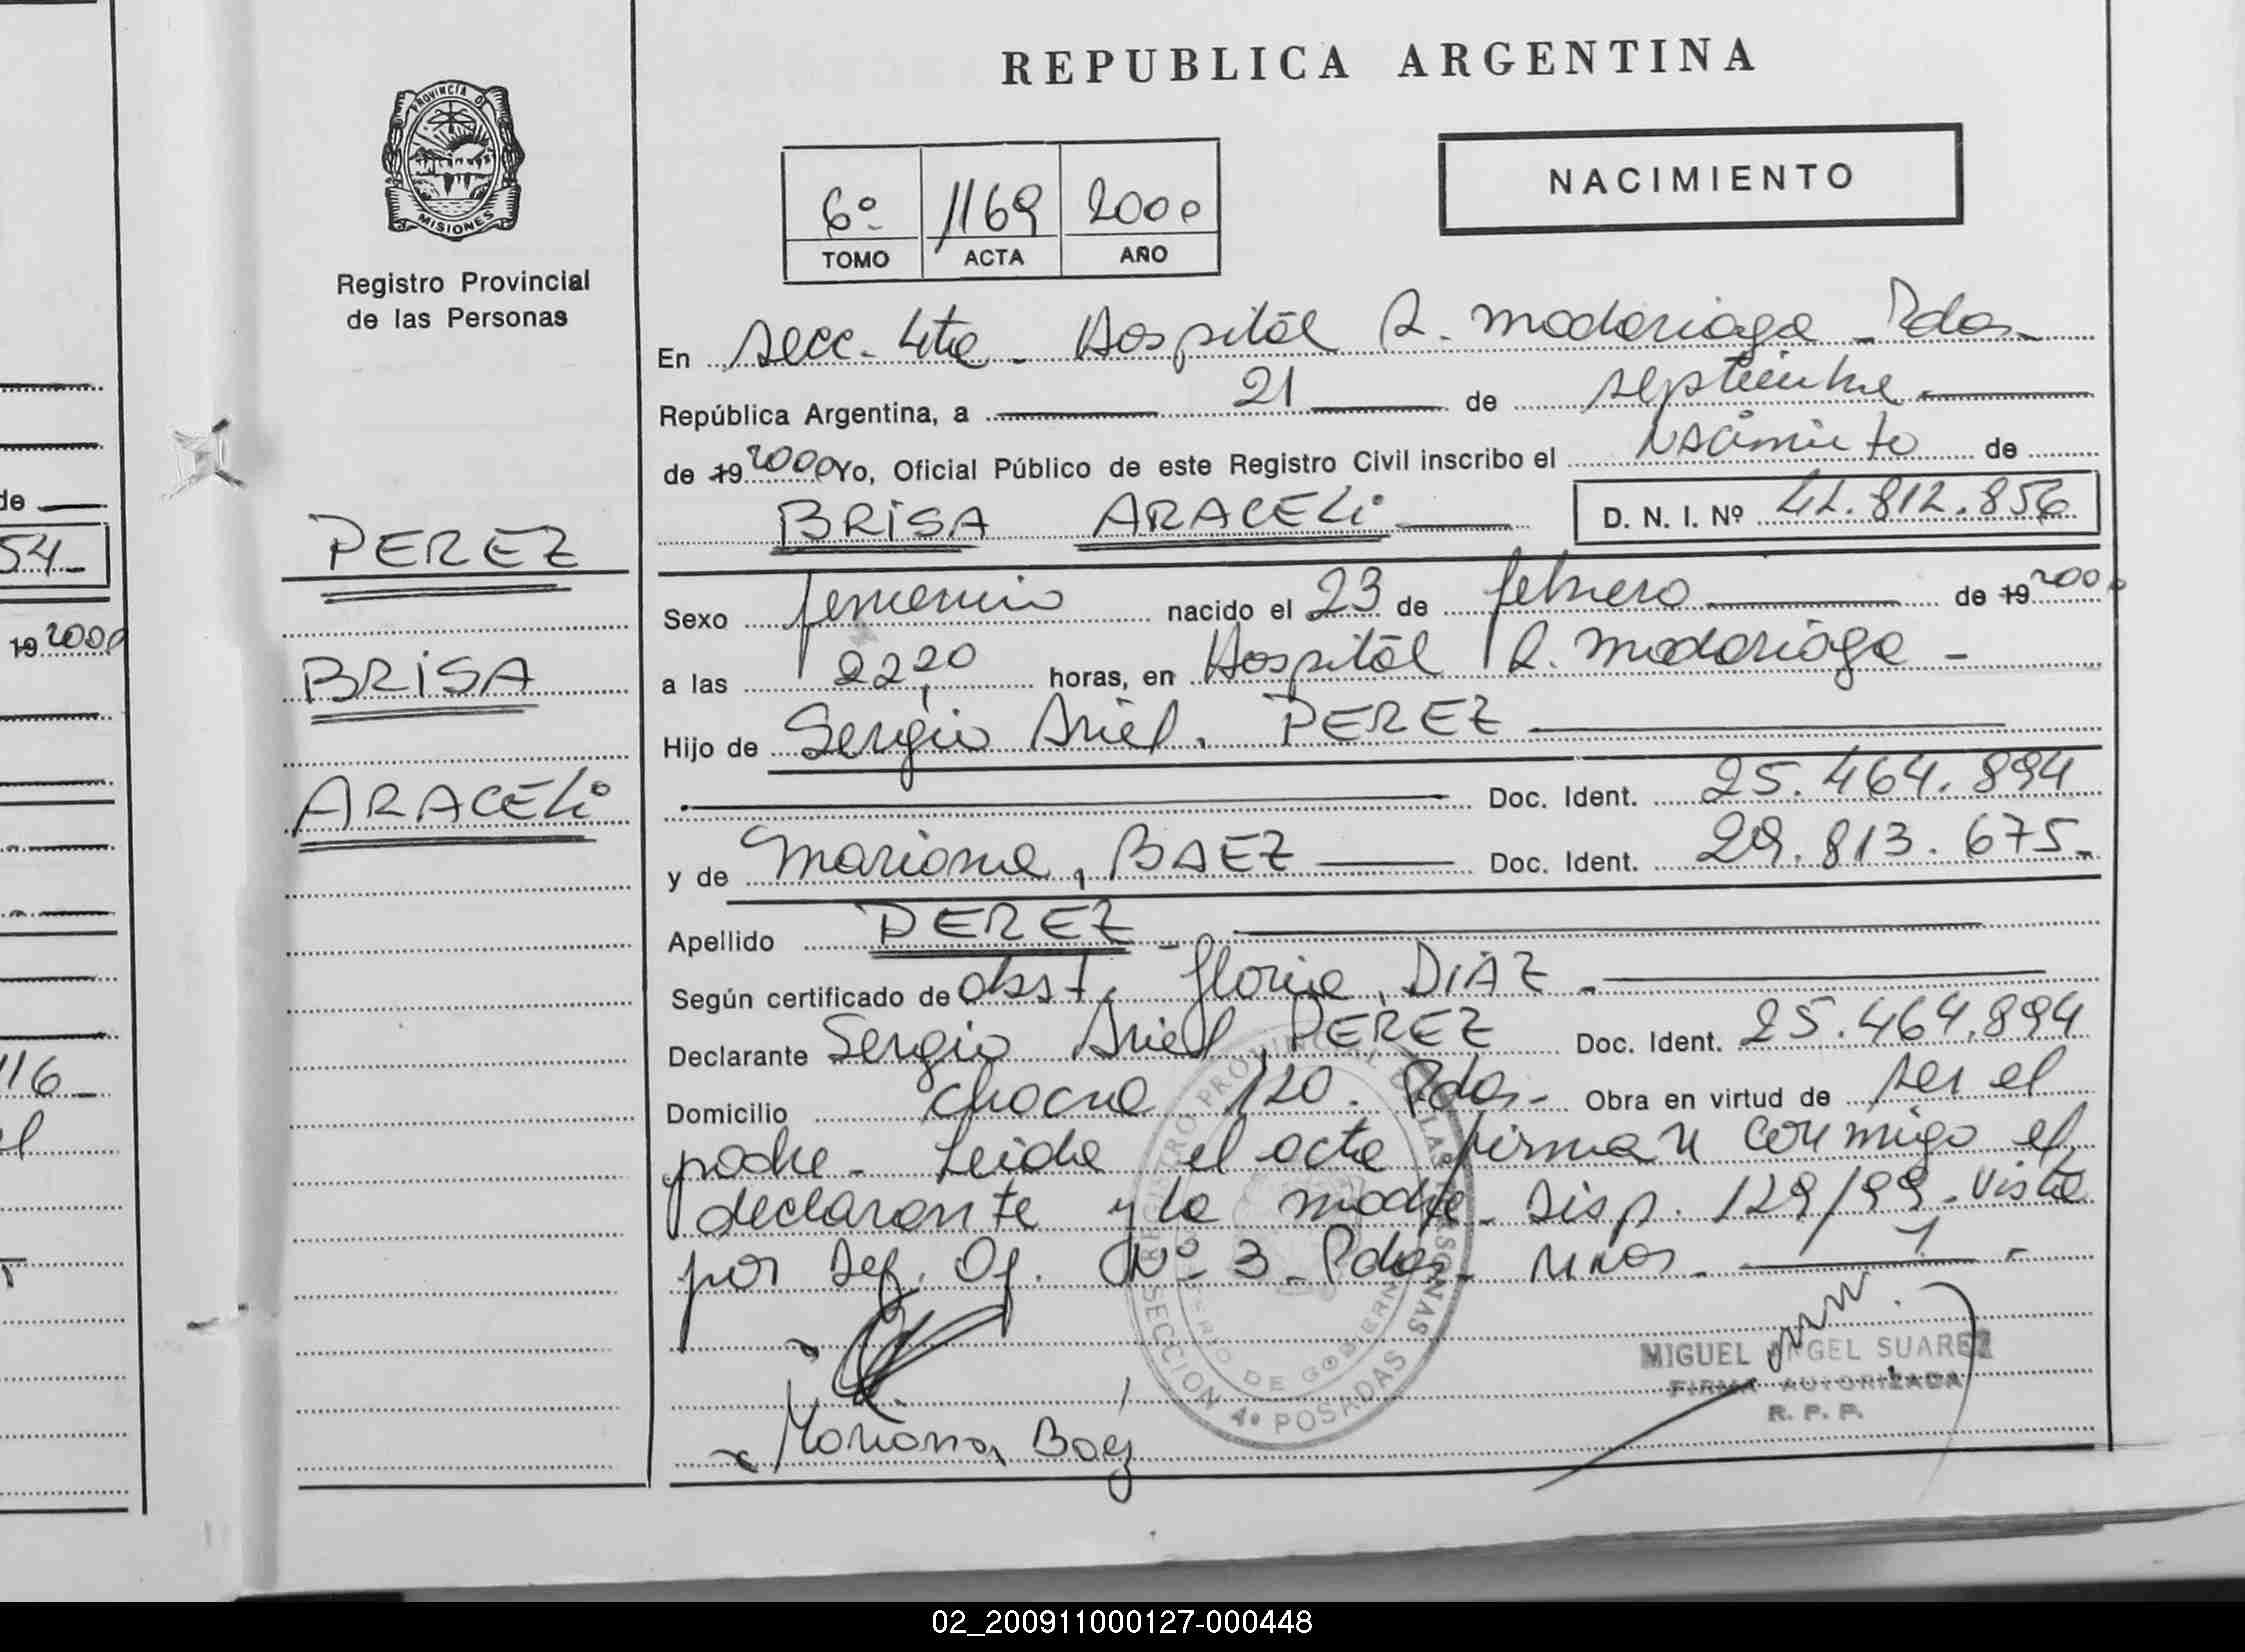 54-
19 2000
116-
PROVINCIA DE
MISIONES
Registro Provincial
de las Personas
PEREZ
BRISA
ARACELi
REPUBLICA ARGENTINA
6º 1169 2000
TOMO ACTA AÑO
NACIMIENTO
En secc. 4ta - Hospital R. Madariaga - Pdas -
República Argentina, a 21 de septiembre
de 19 2000 Yo, Oficial Público de este Registro Civil inscribo el nacimiento de
BRiSA ARACELi D. N. I. Nº 42.812.856
Sexo femenino nacido el 23 de febrero de 19 2000
a las 22,20 horas, en Hospital R. Madariaga -
Hijo de Sergio Ariel, PEREZ
Doc. Ident. 25.464.894
y de Mariana, BAEZ Doc. Ident. 29.813.675-
Apellido PEREZ -
Según certificado de obst. Gloria, DIAZ -
Declarante Sergio Ariel, PEREZ Doc. Ident. 25.464.894
Domicilio 120. Pdas - Obra en virtud de ser el
padre - Leida el acta firman conmigo el
declarante y la madre - Disp. 129/99 - Vista
por Def. Of. Nº 3 - Pdas - Mnes. -
REGISTRO PROVINCIAL DE LAS PERSONAS
SECCION 4º POSADAS
MINISTERIO DE GOBIERNO
MIGUEL ANGEL SUAREZ
FIRMA AUTORIZADA
R. P. P.
Mariana Baez
02_200911000127-000448